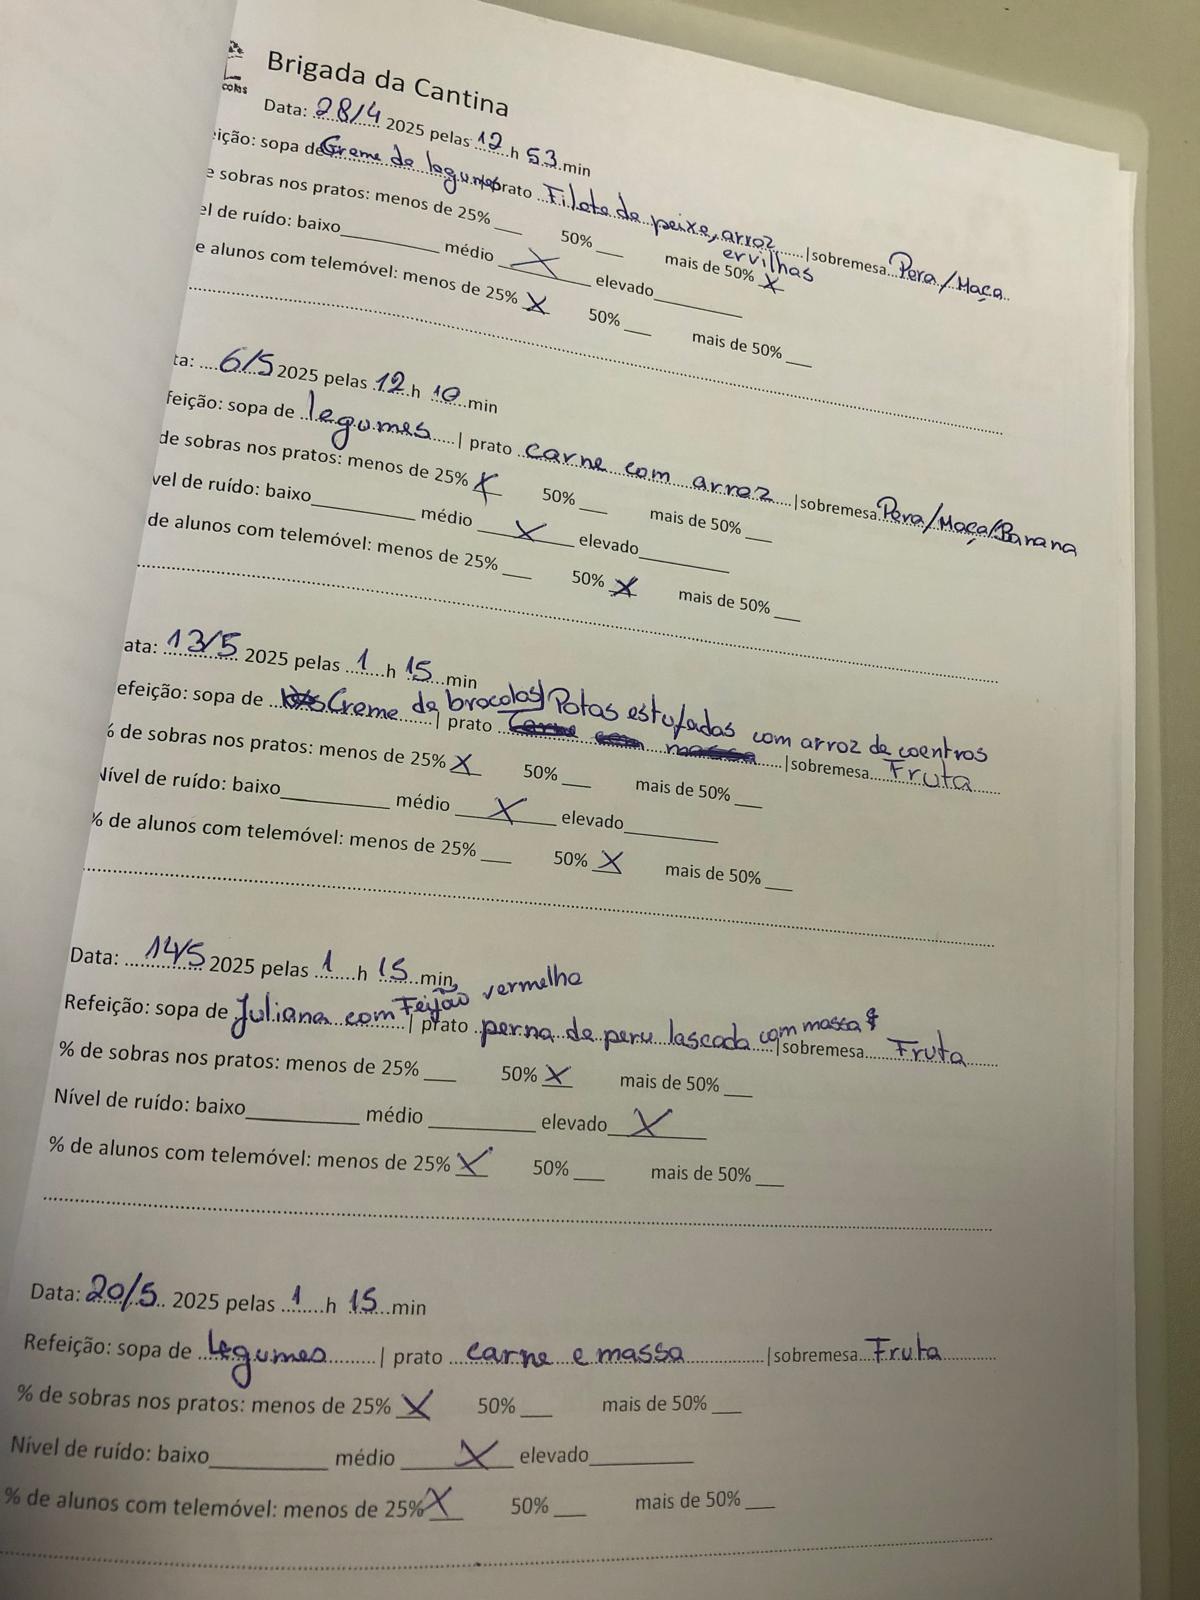 colas
Brigada da Cantina
Data: 28/4 2025 pelas 12 h 53 min
eição: sopa de Creme de legumes prato Filete de peixe, arroz ervilhas |sobremesa Pera/Maça
e sobras nos pratos: menos de 25% ___ 50% ___ mais de 50% X
el de ruído: baixo ___ médio X elevado ___
e alunos com telemóvel: menos de 25% X 50% ___ mais de 50% ___
ta: 6/5 2025 pelas 12 h 10 min
feição: sopa de legumes | prato carne com arroz |sobremesa Pera/Maça/Banana
de sobras nos pratos: menos de 25% X 50% ___ mais de 50% ___
vel de ruído: baixo ___ médio X elevado ___
de alunos com telemóvel: menos de 25% ___ 50% X mais de 50% ___
ata: 13/5 2025 pelas 1 h 15 min
efeição: sopa de Creme de brocolos | prato Potas estufadas com arroz de coentros |sobremesa Fruta
% de sobras nos pratos: menos de 25% X 50% ___ mais de 50% ___
Nível de ruído: baixo ___ médio X elevado ___
% de alunos com telemóvel: menos de 25% ___ 50% X mais de 50% ___
Data: 14/5 2025 pelas 1 h 15 min
Refeição: sopa de Juliana com Feijão vermelho | prato perna de peru lascada com massa |sobremesa Fruta
% de sobras nos pratos: menos de 25% ___ 50% X mais de 50% ___
Nível de ruído: baixo ___ médio ___ elevado X
% de alunos com telemóvel: menos de 25% X 50% ___ mais de 50% ___
Data: 20/5 2025 pelas 1 h 15 min
Refeição: sopa de legumes | prato carne e massa |sobremesa Fruta
% de sobras nos pratos: menos de 25% X 50% ___ mais de 50% ___
Nível de ruído: baixo ___ médio X elevado ___
% de alunos com telemóvel: menos de 25% X 50% ___ mais de 50% ___